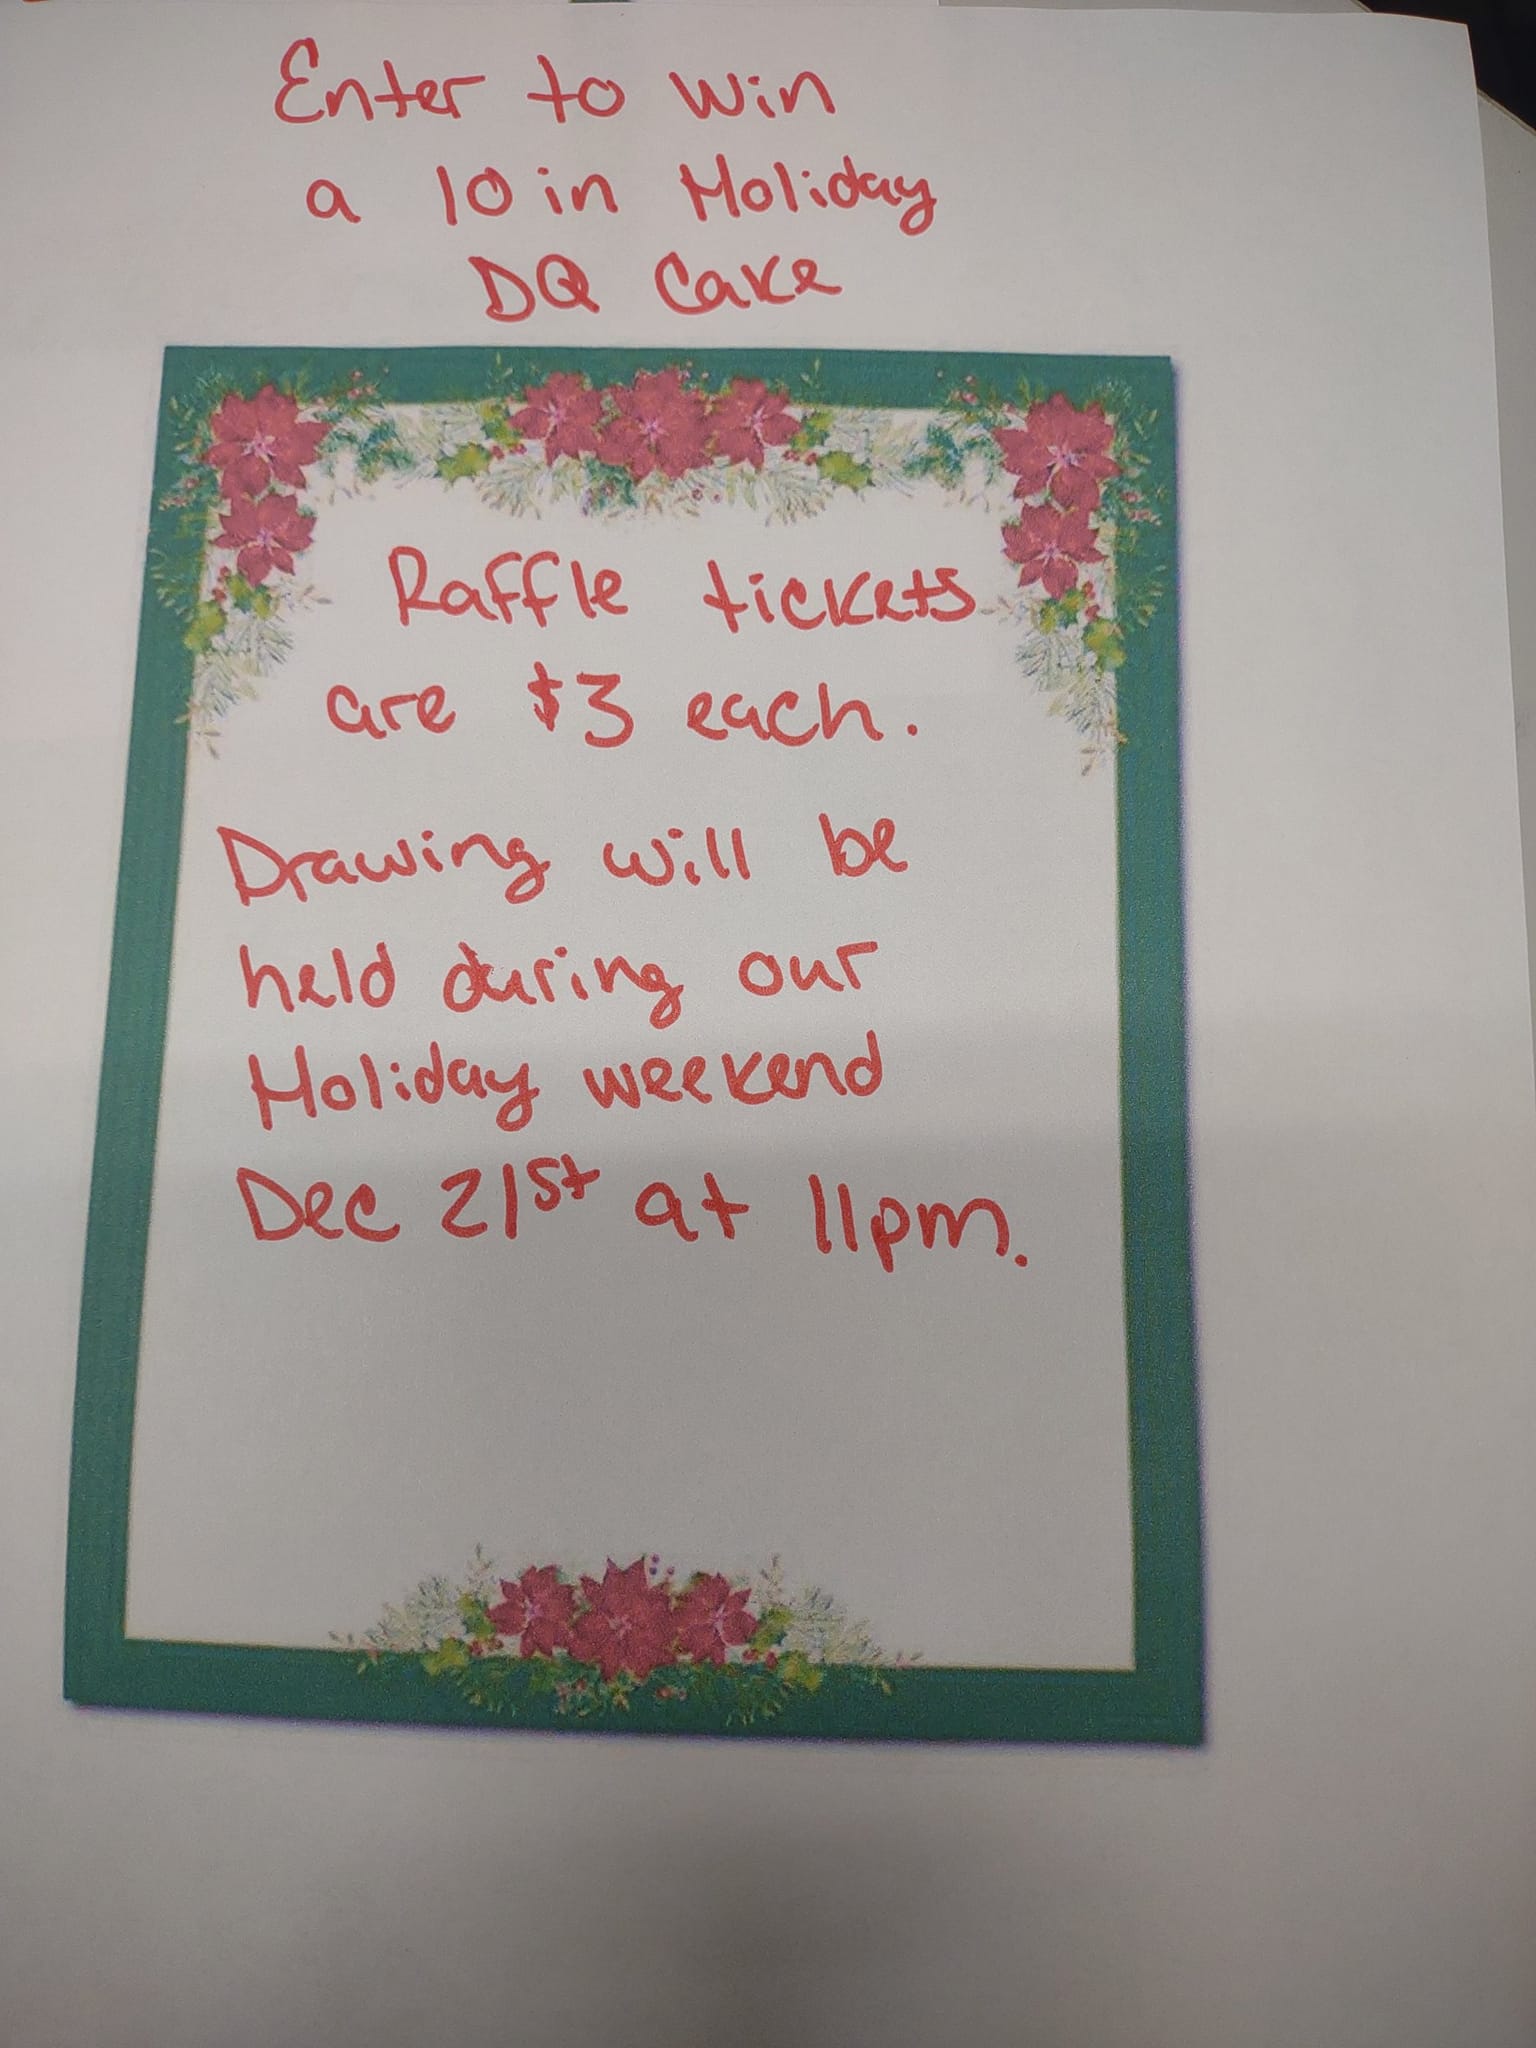 Enter to win
a 10 in Holiday
DQ Cake
Raffle tickets
are $3 each.
Drawing will be
held during our
Holiday weekend
Dec 21st at 11pm.